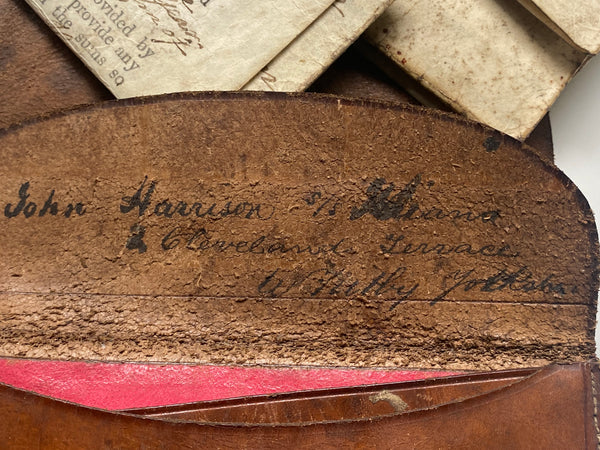 provided by
provide any
the sums so
of
John Harrison S/S
2 Cleveland Terrace
Whitby Yorkshire